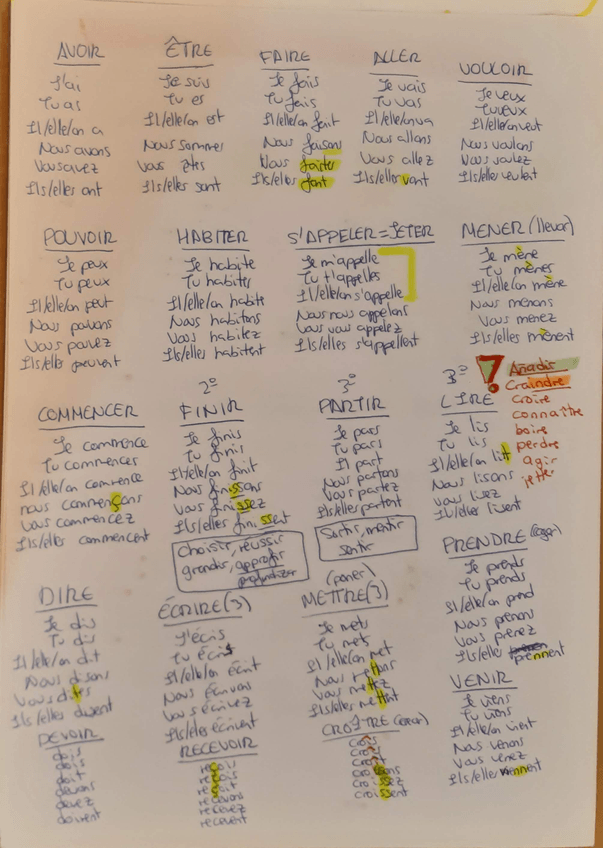 AVOIR
J'ai
Tu as
Il/elle/on a
Nous avons
Vous avez
Ils/elles ont
ÊTRE
Je suis
Tu es
Il/elle/on est
Nous sommes
Vous êtes
Ils/elles sont
FAIRE
Je fais
Tu fais
Il/elle/on fait
Nous faisons
Vous faites
Ils/elles font
ALLER
Je vais
Tu vas
Il/elle/on va
Nous allons
Vous allez
Ils/elles vont
VOULOIR
Je veux
Tu veux
Il/elle/on veut
Nous voulons
Vous voulez
Ils/elles veulent
POUVOIR
Je peux
Tu peux
Il/elle/on peut
Nous pouvons
Vous pouvez
Ils/elles peuvent
HABITER
Je habite
Tu habites
Il/elle/on habite
Nous habitons
Vous habitez
Ils/elles habitent
S'APPELER = JETER
Je m'appelle
Tu t'appelles
Il/elle/on s'appelle
Nous nous appelons
Vous vous appelez
Ils/elles s'appellent
MENER (llevar)
Je mène
Tu mènes
Il/elle/on mène
Nous menons
Vous menez
Ils/elles mènent
COMMENCER
Je commence
Tu commences
Il/elle/on commence
nous commençons
Vous commencez
Ils/elles commencent
2º
FINIR
Je finis
Tu finis
Il/elle/on finit
Nous finissons
Vous finissez
Ils/elles finissent
Choisir, réussir
grandir,
3º
PARTIR
Je pars
Tu pars
Il part
Nous partons
Vous partez
Ils/elles partent
Sortir, mentir
sentir
3º
LIRE
Je lis
Tu lis
Il/elle/on lit
Nous lisons
Vous lisez
Ils/elles lisent
! Añadir
Craindre
croire
connaître
boire
perdre
agir
jeter
DIRE
Je dis
Tu dis
Il/elle/on dit
Nous disons
Vous dites
Ils/elles disent
ÉCRIRE (3)
J'écris
Tu écris
Il/elle/on écrit
Nous écrivons
Vous écrivez
Ils/elles écrivent
(poner)
METTRE (3)
Je mets
Tu mets
Il/elle/on met
Nous mettons
Vous mettez
Ils/elles mettent
PRENDRE (coger)
Je prends
Tu prends
Il/elle/on prend
Nous prenons
Vous prenez
Ils/elles prennent
VENIR
Je viens
Tu viens
Il/elle/on vient
Nous venons
Vous venez
Ils/elles viennent
DEVOIR
dois
dois
doit
devons
devez
doivent
RECEVOIR
reçois
reçois
reçoit
recevons
recevez
CROÎTRE
croissons
croissez
croissent